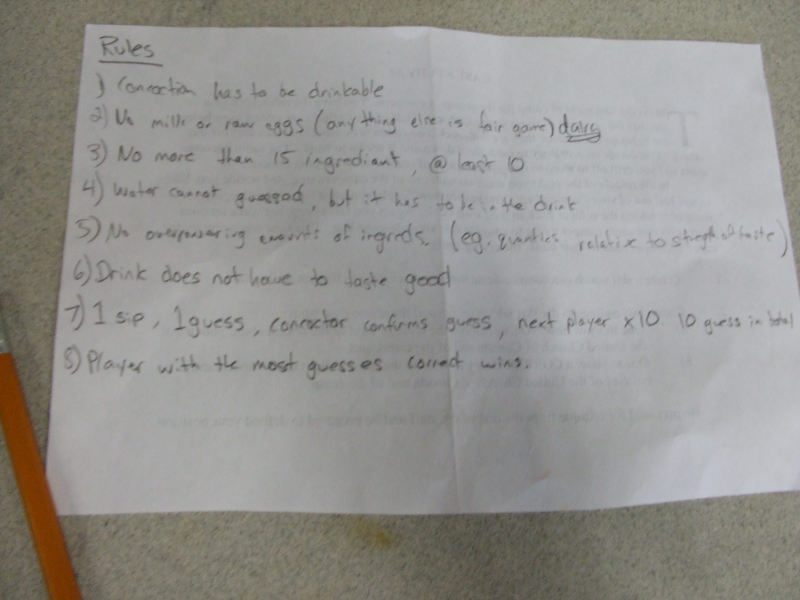 Rules
1) Concoction has to be drinkable
2) No milk or raw eggs (anything else is fair game) dairy
3) No more than 15 ingrediant, @ least 10
4) Water cannot guessed, but it has to be in the drink
5) No overpowering amounts of ingreds. (eg. quanties relative to strength of taste)
6) Drink does not have to taste good
7) 1 sip, 1 guess, concoctor confirms guess, next player x10. 10 guess in total
8) Player with the most guesses correct wins.